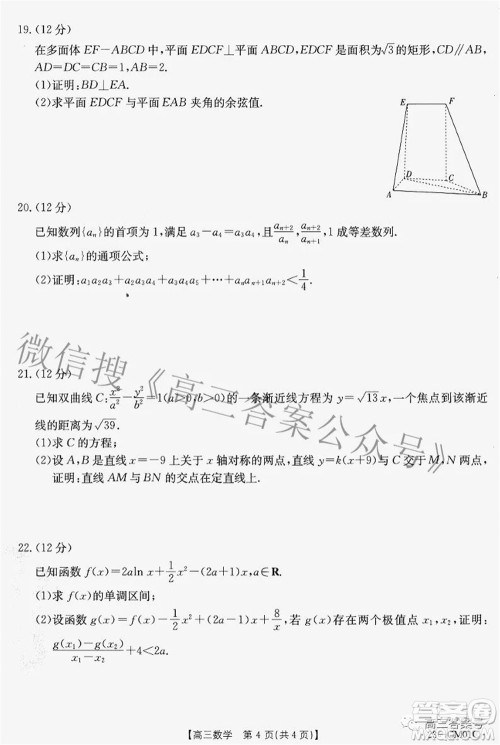 19.(12分)
在多面体 EF－ABCD 中,平面 EDCF⊥平面 ABCD,EDCF 是面积为√3的矩形,CD∥AB,
AD=DC=CB=1,AB=2.
(1)证明:BD⊥EA.
(2)求平面 EDCF 与平面 EAB 夹角的余弦值.
E
F
D
C
A
B
20.(12分)
已知数列{aₙ}的首项为1,满足 a₃－a₄=a₃a₄,且 aₙ₊₂/aₙ, aₙ₊₂/aₙ₊₁,1成等差数列.
(1)求{aₙ}的通项公式;
(2)证明:a₁a₂a₃+a₂a₃a₄+a₃a₄a₅+…+aₙaₙ₊₁aₙ₊₂<1/4.
21.(12分)
已知双曲线 C:x²/a²－y²/b²=1(a>0,b>0)的一条渐近线方程为 y=√13x,一个焦点到该渐近
线的距离为√39.
(1)求 C 的方程;
(2)设 A,B 是直线 x=－9 上关于 x 轴对称的两点,直线 y=k(x+9)与 C 交于 M,N 两点,
证明:直线 AM 与 BN 的交点在定直线上.
22.(12分)
已知函数 f(x)=2aln x+1/2x²－(2a+1)x,a∈R.
(1)求 f(x)的单调区间;
(2)设函数 g(x)=f(x)－1/2x²+(2a－1)x+8/x,若 g(x)存在两个极值点 x₁,x₂,证明:
g(x₁)－g(x₂)/x₁－x₂+4<2a.
微信搜《高三答案公众号》
【高三数学　第4页(共4页)】
高三答案号